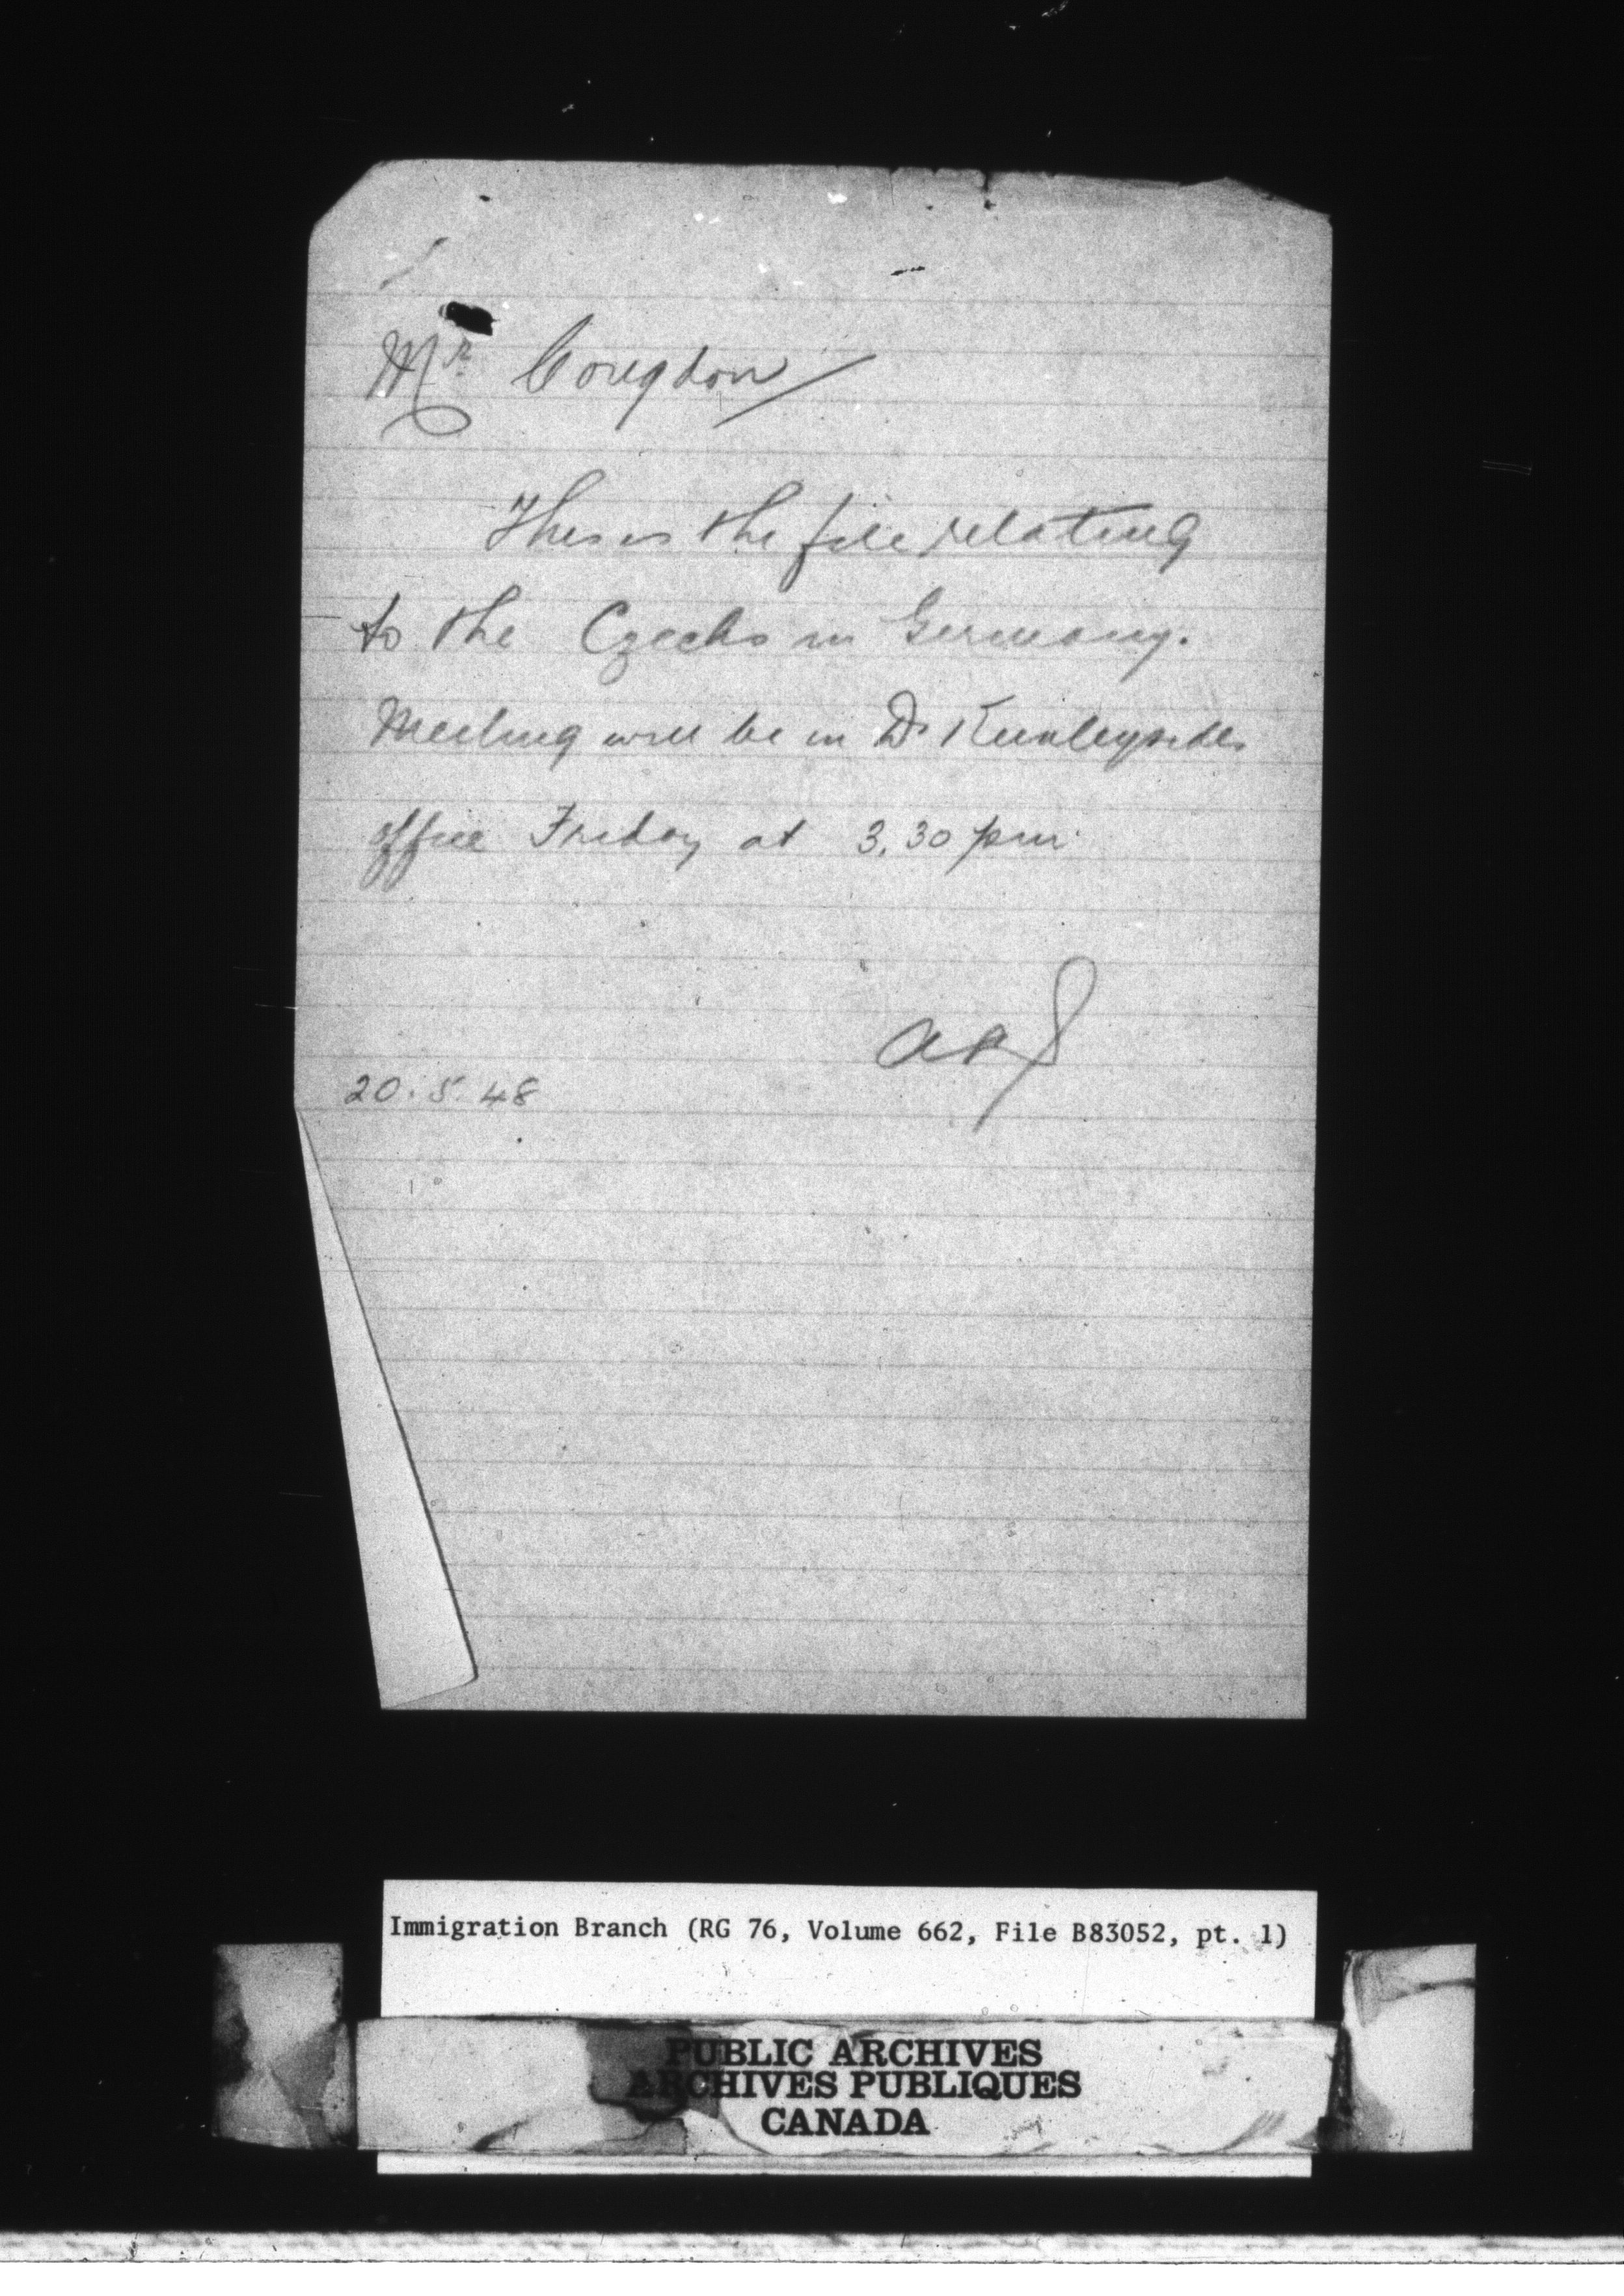 Mr. Congdon
This is the file relating
to the Czechs in Germany.
Meeting will be in Dr Keenleysides
office Friday at 3.30 pm
20.5.48
Immigration Branch (RG 76, Volume 662, File B83052, pt. 1)
PUBLIC ARCHIVES
ARCHIVES PUBLIQUES
CANADA